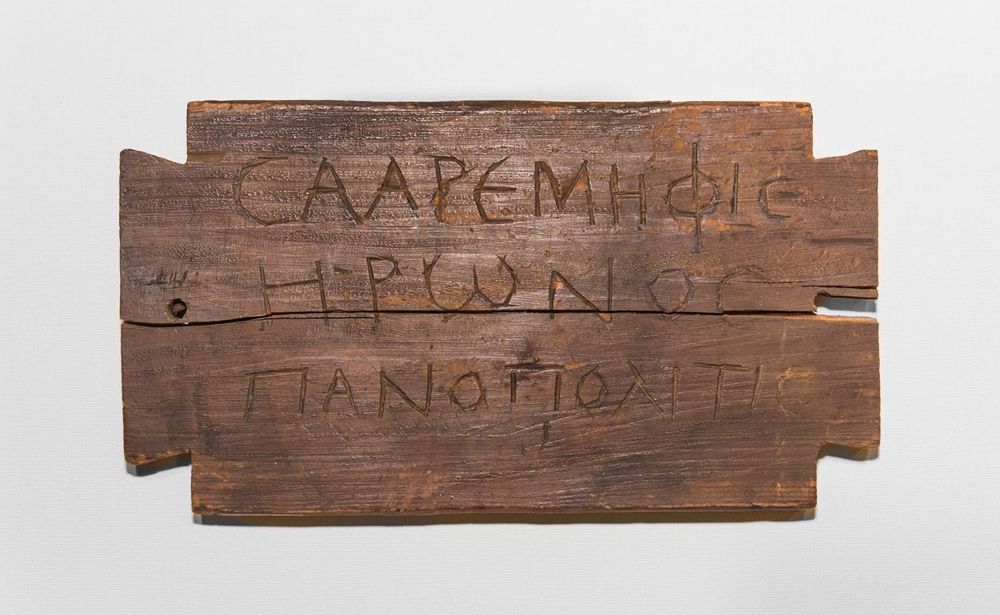 ϹΑΑΡΕΜΗΦΙϹ
ΗΡωΝΟϹ
ΠΑΝΟΠΟΛΙΤΙϹ